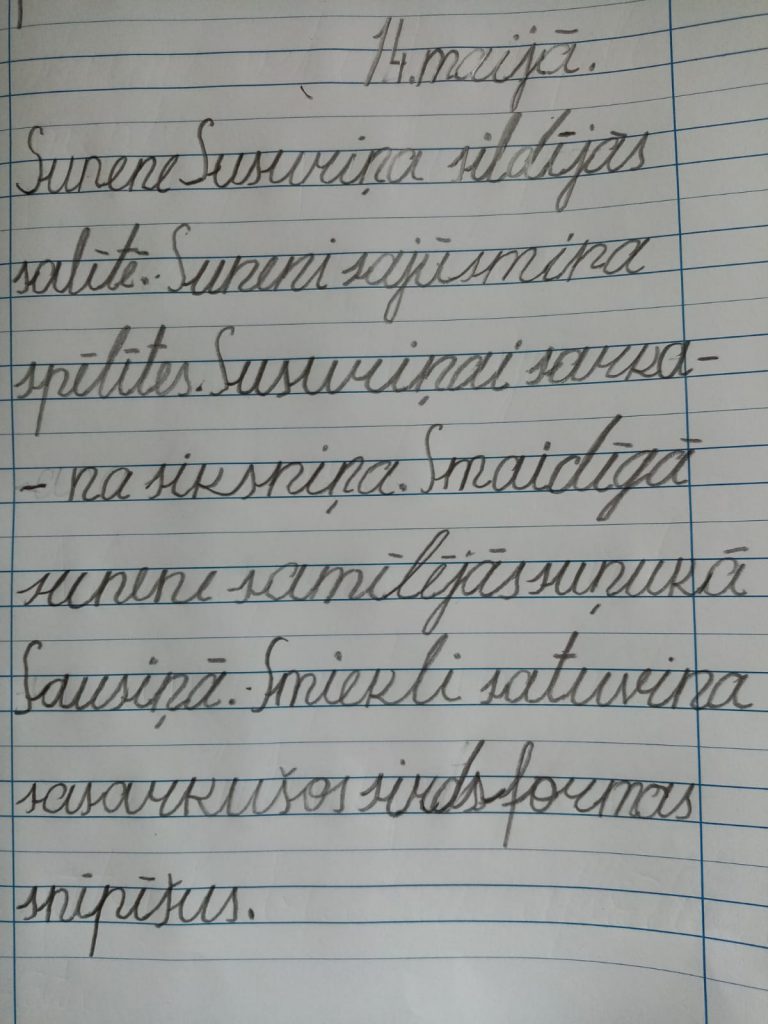 14. maijā.
Sunene Susuriņa sildījās
salītē. Suneni sajūsmina
spēlītes. Susuriņai sarka-
- na siksniņa. Smaidīgā
sunene samīlējās suņukā
Sausiņā. Smiekli satuvina
sasarkušos sirds formas
snīpīšus.